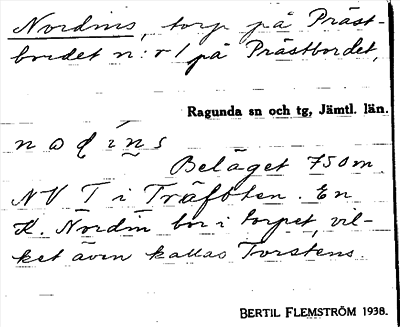 Nordins, torp på Präst-
bordet n:r 1 på Prästbordet,
Ragunda sn och tg, Jämtl. län.
Beläget 750 m
NV T i Träfoten. En
K. Nordin bor i torpet, vil-
ket även kallas Torstens.
BERTIL FLEMSTRÖM 1938.